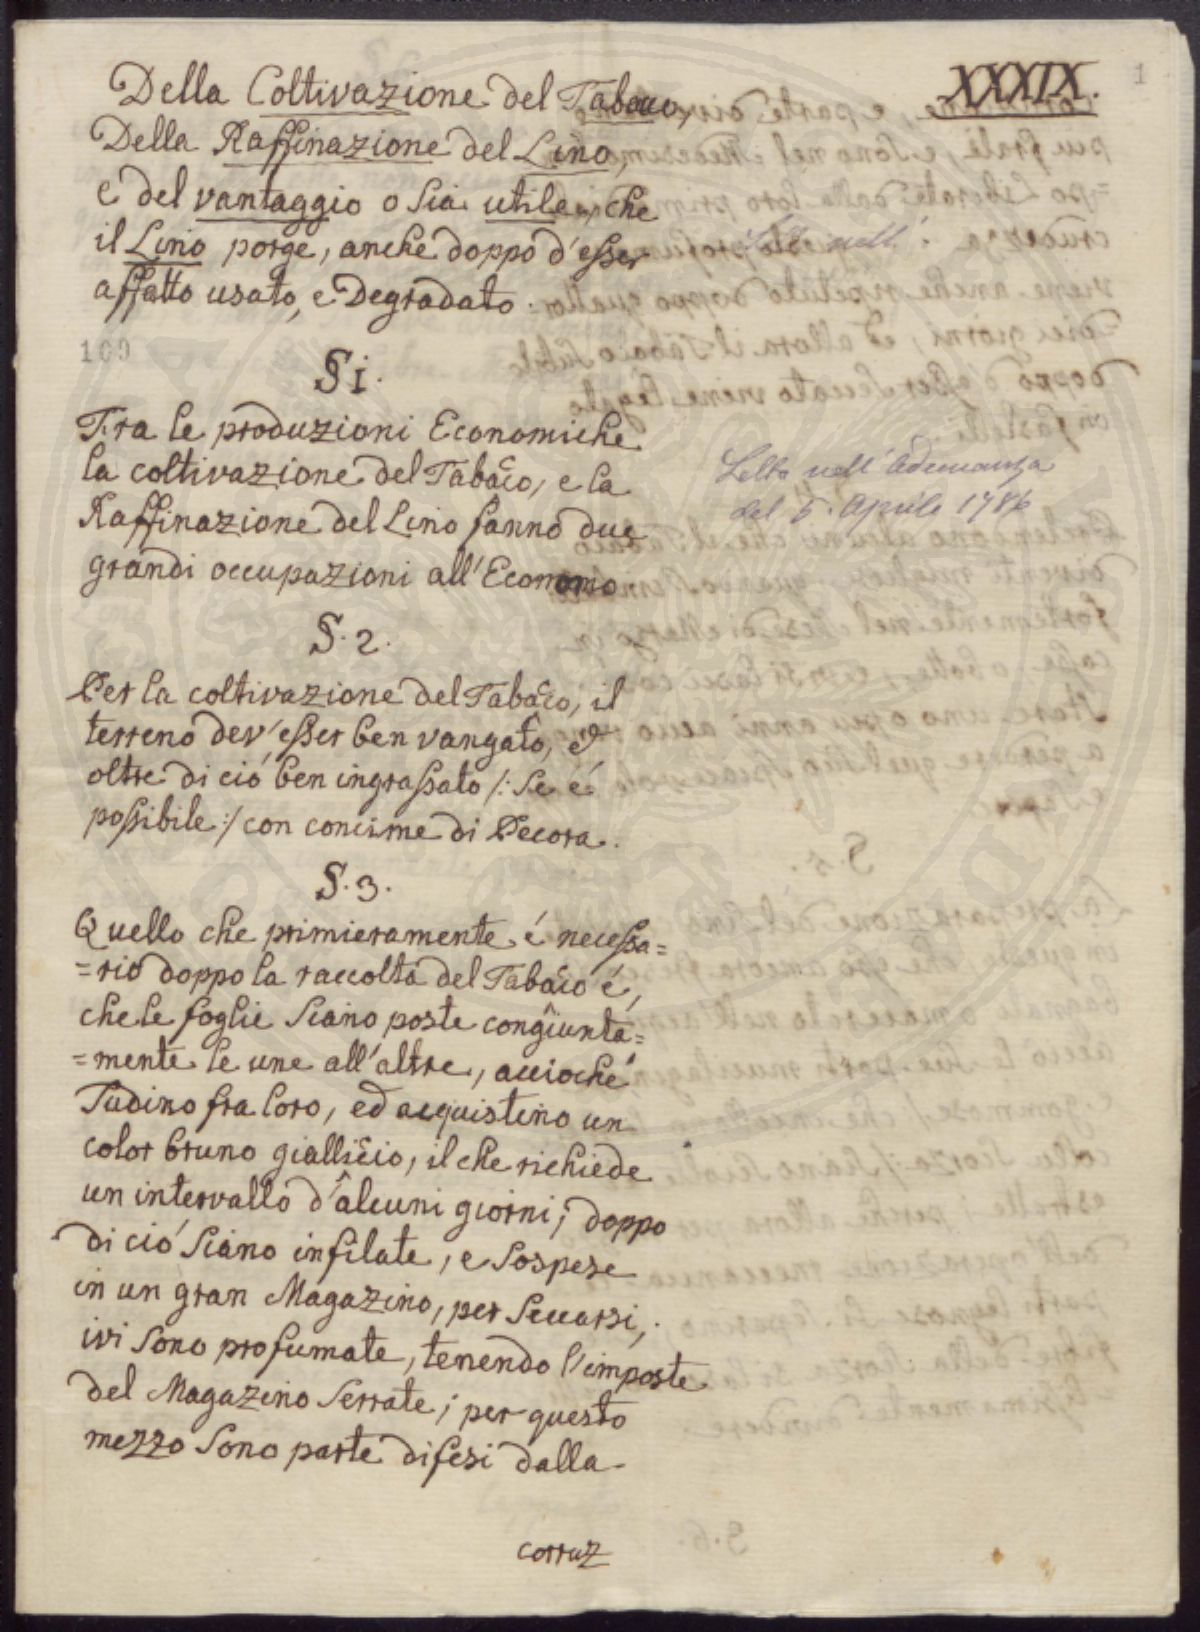 XXXIX. 1
Della Coltivazione del Tabaco,
Della Raffinazione del Lino,
e del vantaggio o sia utile, che
il Lino porge, anche doppo d'esser
affatto usato, e Degradato.
169
§ 1.
Tra le produzioni Economiche
la coltivazione del Tabaco, e la
Raffinazione del Lino fanno due
grandi occupazioni all'Economo
Letta nell'Adunanza
del 5. Aprile 1786
§. 2.
Per la coltivazione del Tabaco, il
terreno dev'esser ben vangato, ed
oltre di ció ben ingrassato /: se é
possibile :/ con concime di Pecora.
§. 3.
Quello che primieramente é necessa=
=rio doppo la raccolta del Tabaco é,
che le foglie siano poste congiunta=
=mente le une all'altre, acciochè
sudino fra loro, ed acquistino un
color bruno gialliccio, il che richiede
un intervallo d'alcuni giorni; doppo
di ció siano infilate, e sospese
in un gran Magazino, per seccarsi,
ivi sono profumate, tenendo l'imposte
del Magazino serrate; per questo
mezzo sono parte difesi dalla
corruz